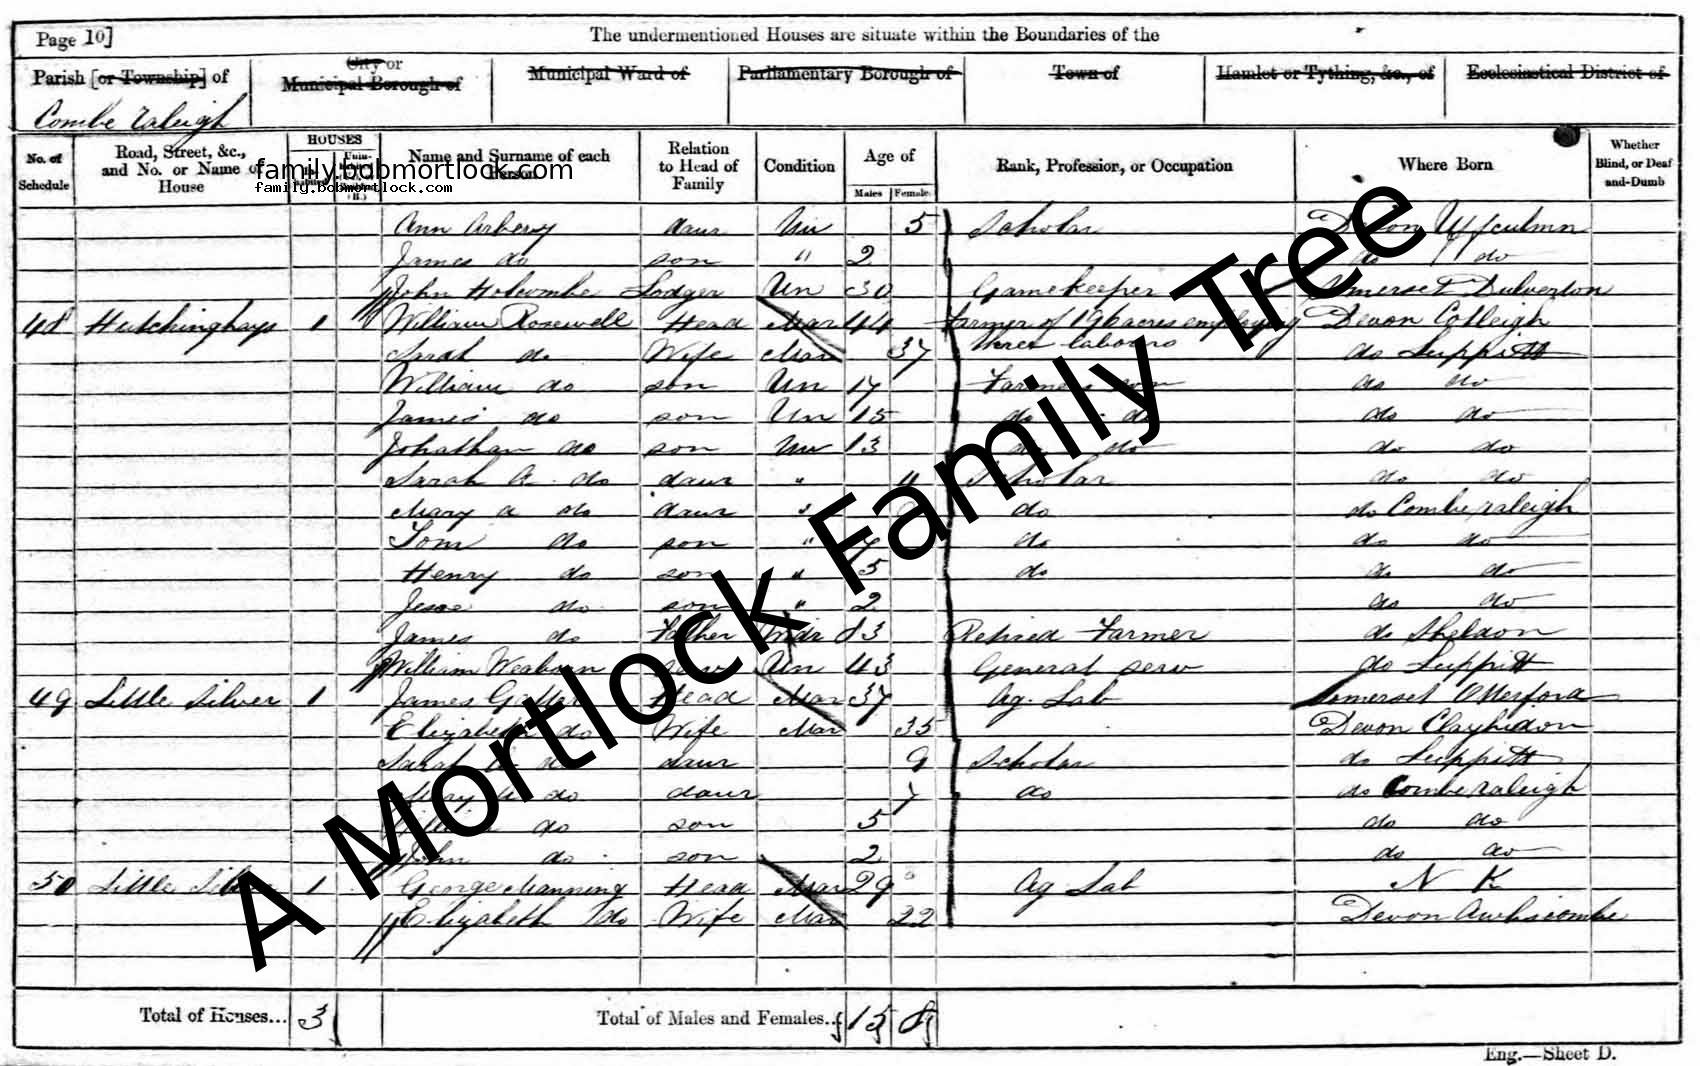 Page 10]
The undermentioned Houses are situate within the Boundaries of the
Parish [or Township] of
City or Municipal Borough of
Municipal Ward of
Parliamentary Borough of
Town of
Hamlet or Tything, &c., of
Ecclesiastical District of
Combe raleigh
No. of Schedule
Road, Street, &c., and No. or Name of House
HOUSES
Name and Surname of each Person
Relation to Head of Family
Condition
Age of
Males
Females
Rank, Profession, or Occupation
Where Born
Whether Blind, or Deaf-and-Dumb
family.bobmortlock.com
family.bobmortlock.com
Ann Arbery daur Un 5 Scholar Devon Uffculmn
James do son " 2 do do
John Holcombe Lodger Un 30 Gamekeeper Somerset Dulverton
48 Hutchinghays 1 William Rosewell Head Mar 44 Farmer of 196 acres employing Devon Cotleigh
Sarah do Wife Mar 37 three labours do Luppitt
William do son Un 17 Farmers son do do
James do son Un 15 do do do do
Johathan do son Un 13 do do do do
Sarah A do daur " 11 Scholar do do
Mary A do daur " do do Combe raleigh
Tom do son " 7 do do do
Henry do son " 5 do do do
Jesse do son " 2 do do
James do Father Widr 83 Retired Farmer do Sheldon
William Weaburn serv Un 43 General serv do Luppitt
49 Little Silver 1 James Head Mar 37 Ag. Lab Somerset Otterford
Elizabeth do Wife Mar 35 Devon Clayhidon
Sarah do daur 9 Scholar do Luppitt
Mary do daur 7 do do Combe raleigh
William do son 5 do do
John do son 2 do do
50 Little Silver 1 George Manning Head Mar 29 Ag Lab N K
Elizabeth do Wife Mar 22 Devon Awliscombe
A Mortlock Family Tree
Total of Houses... 3
Total of Males and Females... 15 8
Eng.—Sheet D.